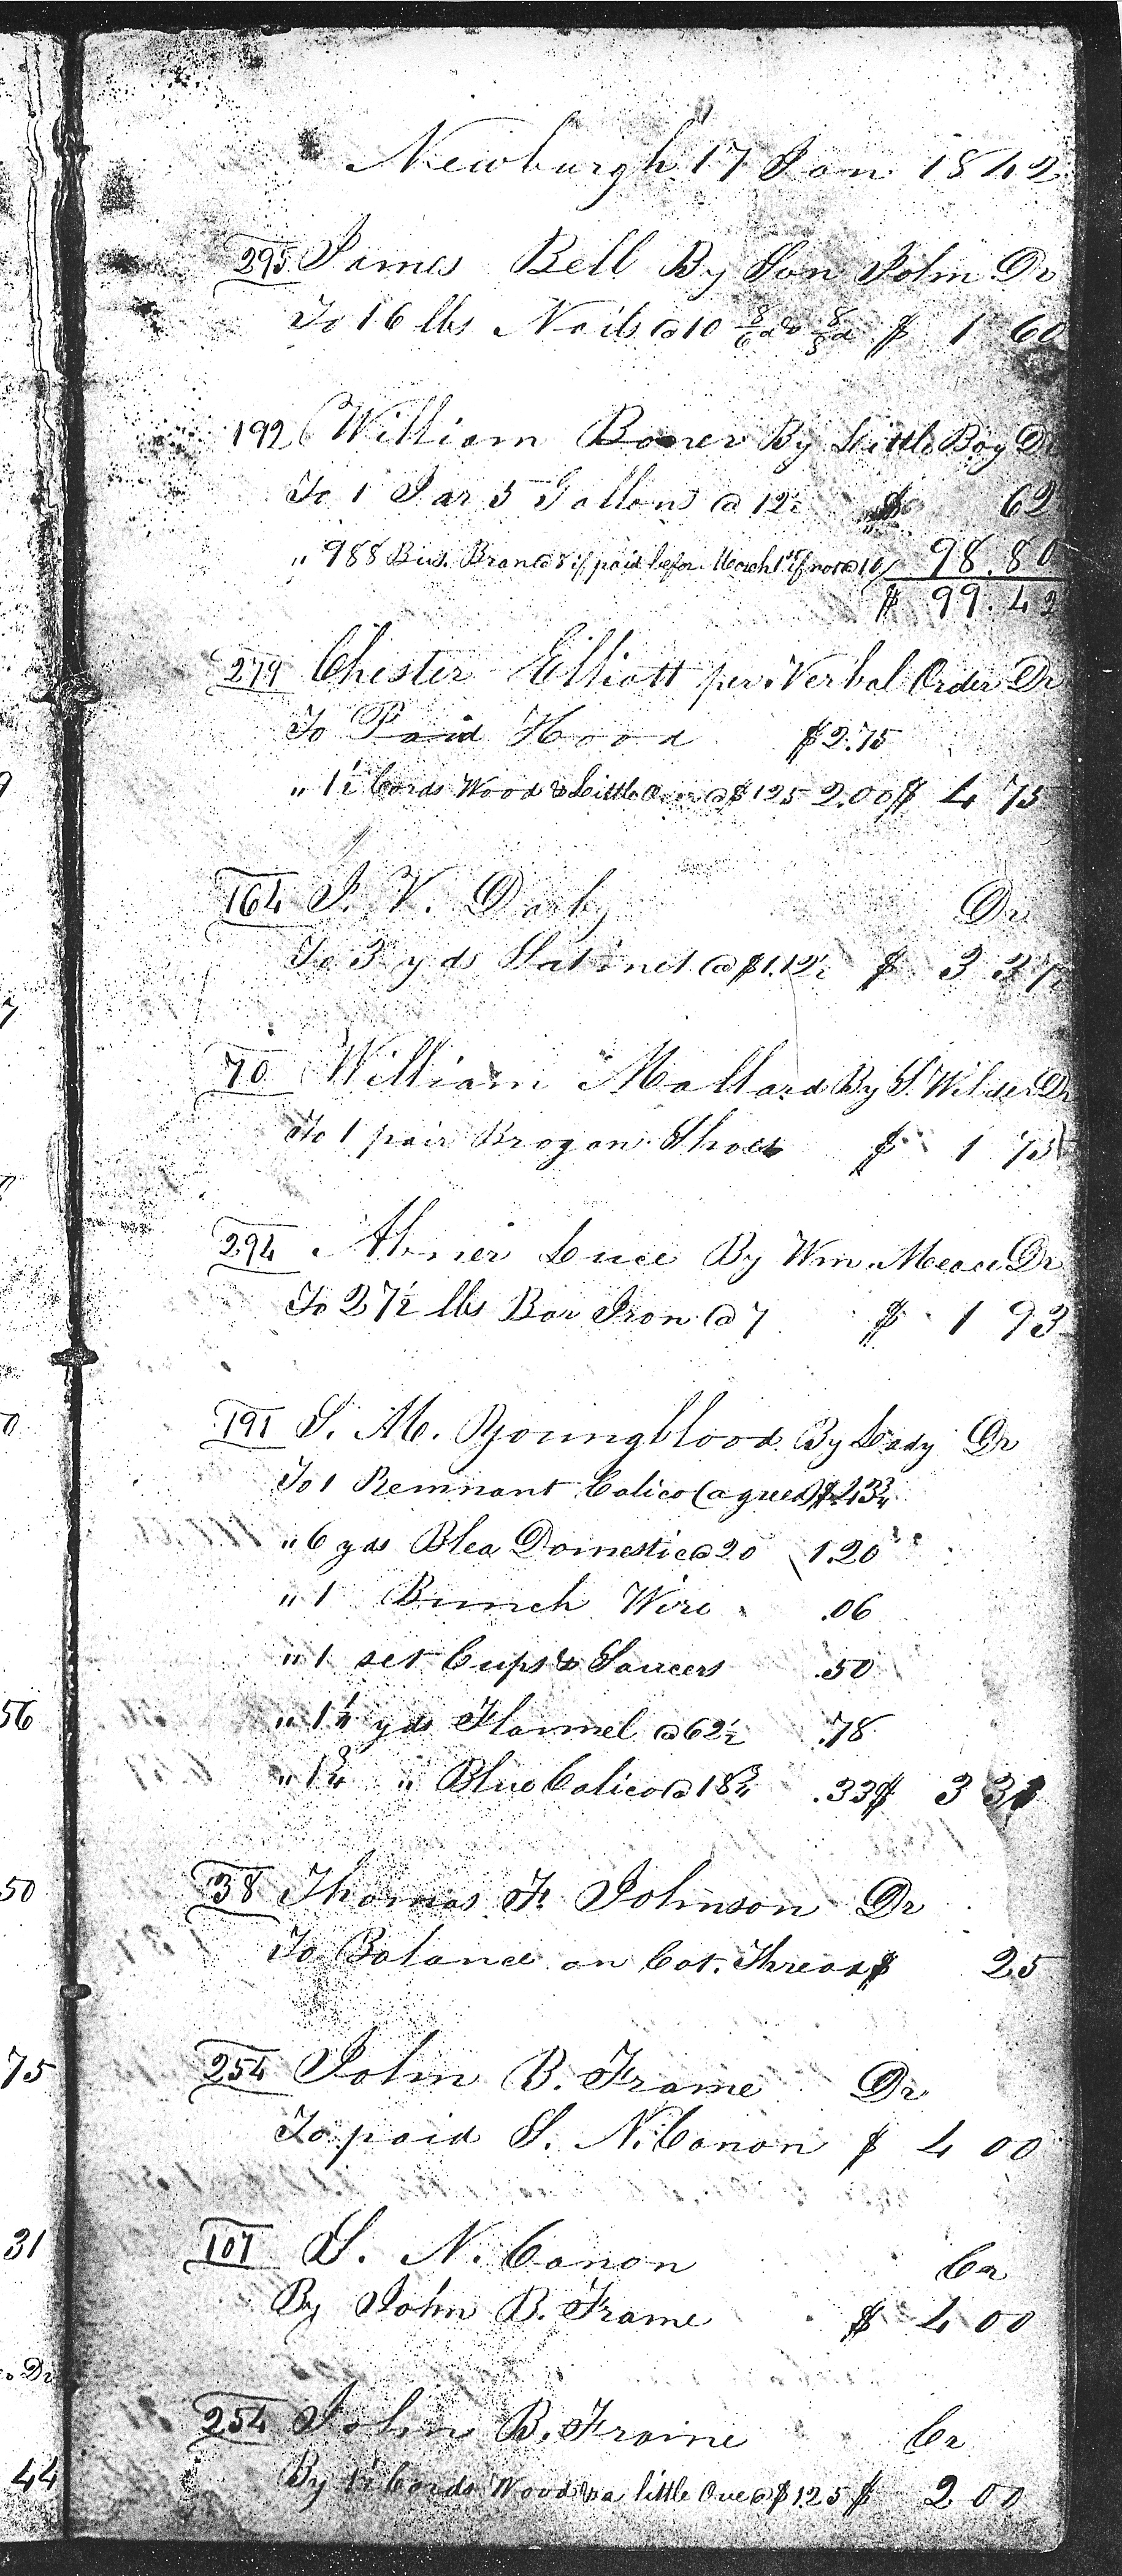 Newburgh 17 Jan 1842
295 James Bell By Son John Dr
To 16 lbs Nails @ 10 8/6d & 8/8d $ 1 60
192 William Boner By Little Boy Dr
To 1 Jar 5 Gallons @ 12½ $ 62
" 988 Bus. Bran @ 8 if paid before March 1st If not @ 10/ 98.80
$ 99.42
279 Chester Elliott per Verbal Order Dr
To Paid Hood $2.75
" 1½ Cords Wood & Little Over @ $125 2.00 $ 4 75
164 J. V. Darby Dr
To 3 yds Satinet @ $1.12½ $ 3 37½
70 William Mallard By S. Wilder Dr
To 1 pair Brogan Shoes $ 1 75
294 Abner Luce By Wm. Meace Dr
To 27½ lbs Bar Iron @ 7 $ 1 93
191 S. M. Youngblood By Lady Dr
To 1 Remnant Calico (agreed) $.43¾
" 6 yds Blea Domestic @ 20 1.20
" 1 Bunch Wire .06
" 1 set Cups & Saucers .50
" 1¼ yds Flannel @ 62½ .78
" 1¾ " Blue Calico @ 18¾ .33 $ 3 31
38 Thomas F. Johnson Dr
To Balance on Cot. Thread $ 25
254 John B. Frame Dr
To paid S. N. Canon $ 4 00
107 S. N. Canon Cr
By John B. Frame $ 4 00
254 John B. Frame Cr
By 1½ Cords Wood & a little Over @ $1.25 $ 2 00
56
50
75
31
Dr
44